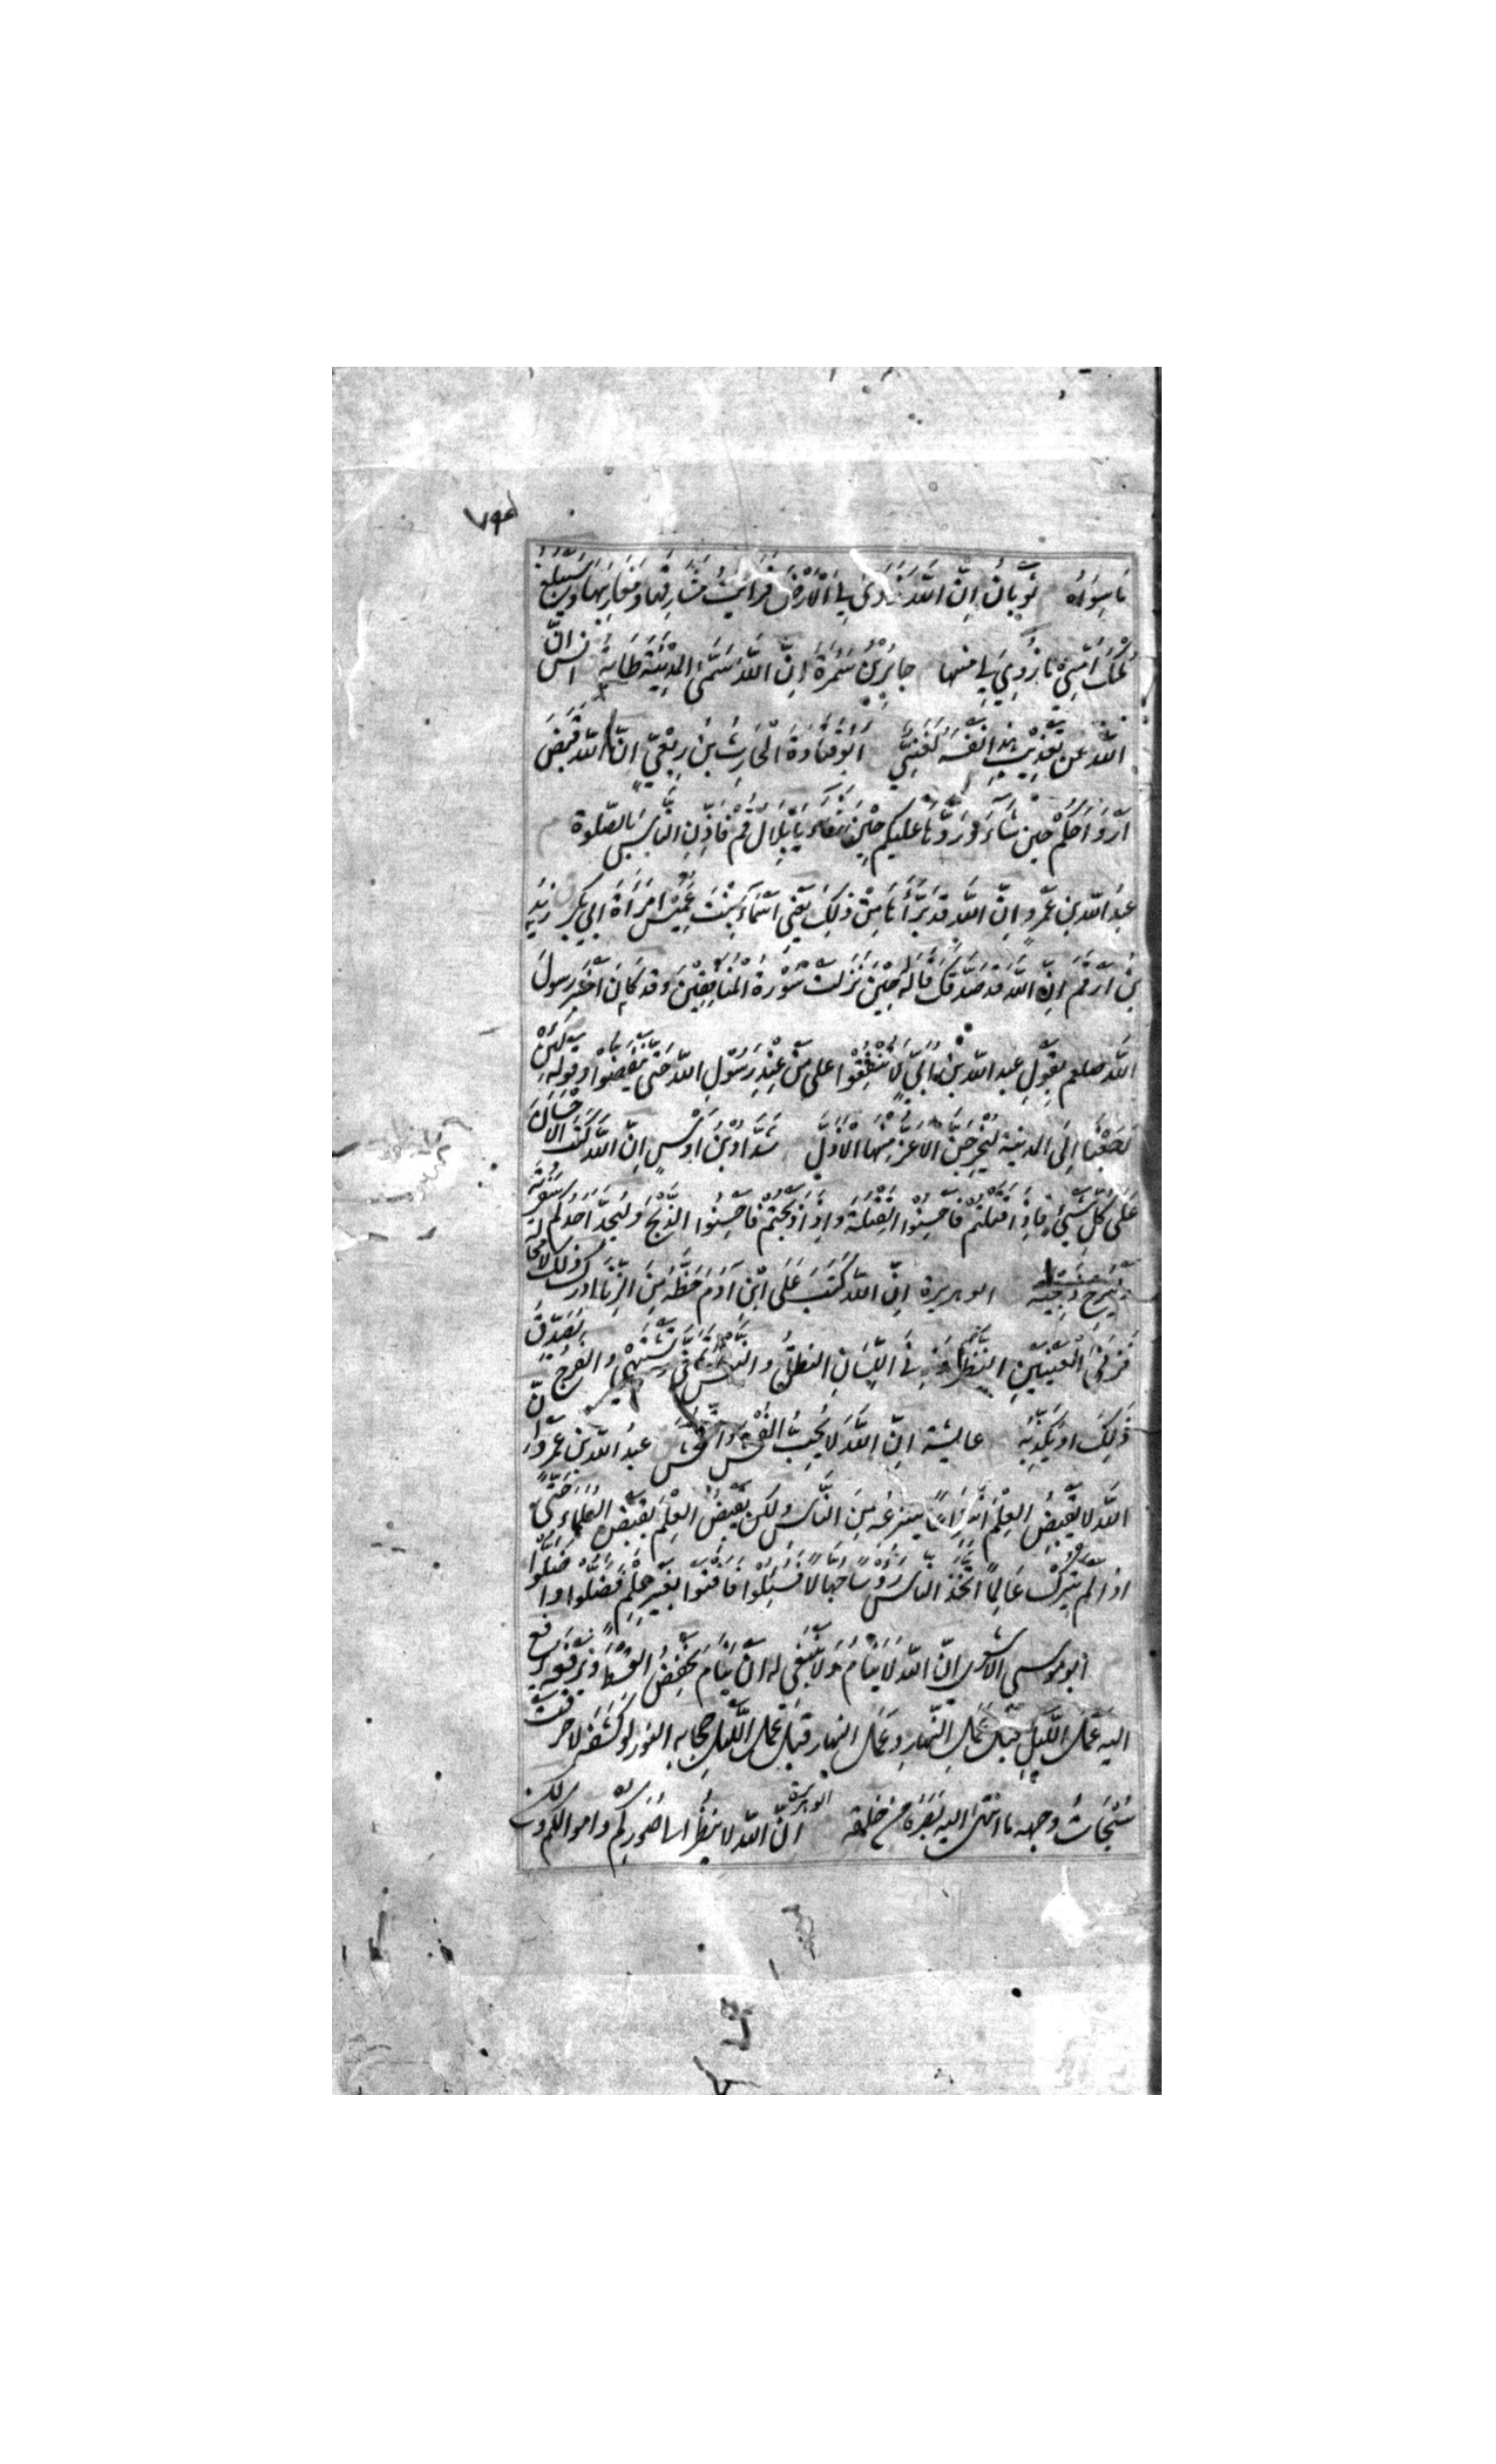 مَا سِوَاهُ ثَوْبَانُ اِنَّ اللّٰهَ زَوَى لِي الْاَرْضَ فَرَاَيْتُ مَشَارِقَهَا وَمَغَارِبَهَا وَسَيَبْلُغُ
مُلْكُ اُمَّتِي مَا زُوِيَ لِي مِنْهَا جَابِرُ بْنُ سَمُرَةَ اِنَّ اللّٰهَ سَمَّى الْمَدِيْنَةَ طَابَةَ انس اِنَّ
اللّٰهَ عَنْ تَعْذِيْبِ هٰذَا نَفْسَهُ لَغَنِيٌّ اَبُو قَتَادَةَ الْحَارِثُ بْنُ رِبْعِيٍّ اِنَّ اللّٰهَ قَبَضَ
اَرْوَاحَكُمْ حِيْنَ شَاءَ وَرَدَّهَا عَلَيْكُمْ حِيْنَ شَاءَ يَا بِلَالُ قُمْ فَاَذِّنِ النَّاسَ بِالصَّلٰوةِ
عَبْدُ اللّٰهِ بن عَمْرٍو اِنَّ اللّٰهَ قَدْ بَرَّأَهَا مِنْ ذٰلِكَ يَعْنِي اَسْمَاءَ بِنْتَ عُمَيْسٍ امْرَاَةَ اَبِي بَكْرٍ زَيْدُ
بْنُ اَرْقَمَ اِنَّ اللّٰهَ قَدْ صَدَّقَكَ قَالَهُ حِيْنَ نَزَلَتْ سُوْرَةُ الْمُنَافِقِيْنَ وَقَدْ كَانَ اَخْبَرَ رَسُولَ
اللّٰهِ صلعم بِقَوْلِ عبد اللّٰه بْنِ اُبَيٍّ لَا تُنْفِقُوْا عَلَى مَنْ عِنْدَ رَسُوْلِ اللّٰهِ حَتَّى يَنْفَضُّوْا وَقَوْلِهِ لَئِنْ
رَجَعْنَا اِلَى الْمَدِيْنَةِ لَيُخْرِجَنَّ الْاَعَزُّ مِنْهَا الْاَذَلَّ شَدَّادُ بْنُ اَوْسٍ اِنَّ اللّٰهَ كَتَبَ الْاِحْسَانَ
عَلَى كُلِّ شَيْءٍ فَاِذَا قَتَلْتُمْ فَاَحْسِنُوْا الْقِتْلَةَ وَاِذَا ذَبَحْتُمْ فَاَحْسِنُوا الذَّبْحَ وَلْيُحِدَّ اَحَدُكُمْ شَفْرَتَهُ
وَلْيُرِحْ ذَبِيْحَتَهُ ابو هريرة اِنَّ اللّٰهَ كَتَبَ عَلَى ابْنِ اٰدَمَ حَظَّهُ مِنَ الزِّنَا اَدْرَكَ ذٰلِكَ لَا مَحَالَةَ
فَزِنَى الْعَيْنَيْنِ النَّظَرُ وَزِنَى اللِّسَانِ النُّطْقُ وَالنَّفْسُ تَمَنَّى وَتَشْتَهِي وَالْفَرْجُ يُصَدِّقُ
ذٰلِكَ اَوْ يُكَذِّبُهُ عايشة اِنَّ اللّٰهَ لَا يُحِبُّ الْفُحْشَ وَالتَّفَحُّشَ عبدُ اللّٰهِ بن عَمْرٍو اِنَّ
اللّٰهَ لَا يَقْبِضُ الْعِلْمَ انْتِزَاعًا يَنْتَزِعُهُ مِنَ النَّاسِ وَلٰكِنْ يَقْبِضُ الْعِلْمَ بِقَبْضِ الْعُلَمَاءِ حَتَّى
اِذَا لَمْ يَتْرُكْ عَالِمًا اتَّخَذَ النَّاسُ رُؤُسًا جُهَّالًا فَسُئِلُوْا فَاَفْتَوْا بِغَيْرِ عِلْمٍ فَضَلُّوا وَاَضَلُّوْا
ابو موسى الاشعري اِنَّ اللّٰهَ لَا يَنَامُ وَلَا يَنْبَغِي لَهُ اَنْ يَنَامَ يَخْفِضُ الْقِسْطَ وَيَرْفَعُهُ يُرْفَعُ
اِلَيْهِ عَمَلُ اللَّيْلِ قَبْلَ عَمَلِ النَّهَارِ وَعَمَلُ النَّهَارِ قَبْلَ عَمَلِ اللَّيْلِ حِجَابُهُ النُّوْرُ لَوْ كَشَفَهُ لَاَحْرَقَتْ
سُبُحَاتُ وَجْهِهِ مَا انْتَهَى اِلَيْهِ بَصَرُهُ مِنْ خَلْقِهِ ابو هريرة اِنَّ اللّٰهَ لَا يَنْظُرُ اِلَى صُوَرِكُمْ وَاَمْوَالِكُمْ وَلٰكِنْ